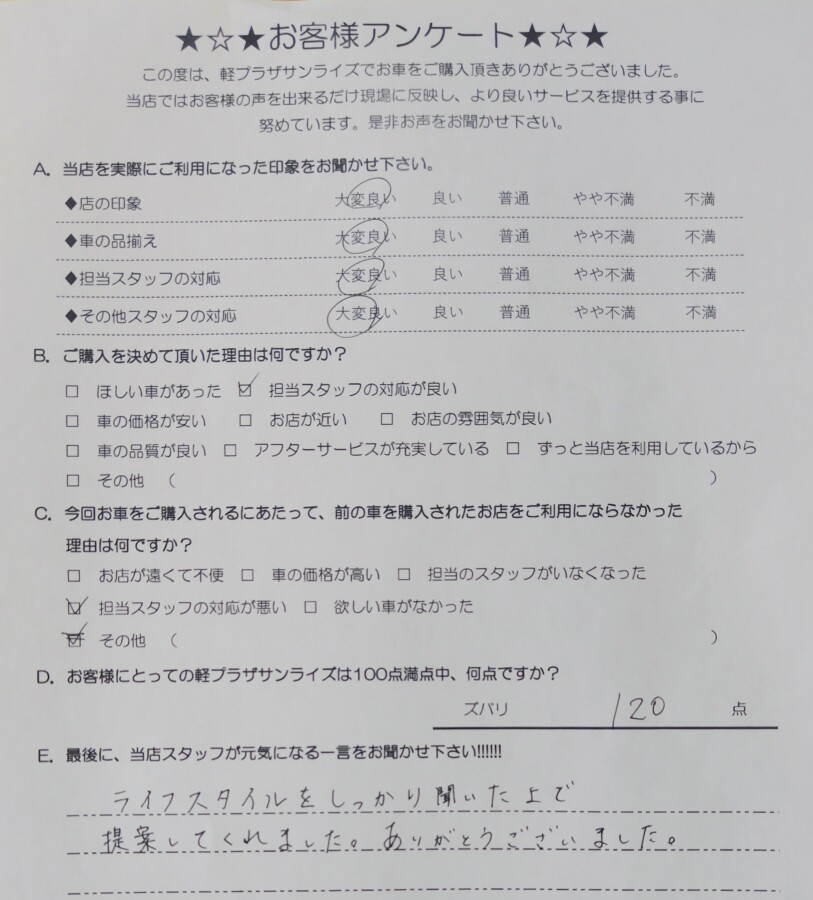 ★☆★お客様アンケート★☆★
この度は、軽プラザサンライズでお車をご購入頂きありがとうございました。
当店ではお客様の声を出来るだけ現場に反映し、より良いサービスを提供する事に
努めています。是非お声をお聞かせ下さい。
A. 当店を実際にご利用になった印象をお聞かせ下さい。
◆店の印象 大変良い 良い 普通 やや不満 不満
◆車の品揃え 大変良い 良い 普通 やや不満 不満
◆担当スタッフの対応 大変良い 良い 普通 やや不満 不満
◆その他スタッフの対応 大変良い 良い 普通 やや不満 不満
B. ご購入を決めて頂いた理由は何ですか？
□ ほしい車があった ☑ 担当スタッフの対応が良い
□ 車の価格が安い □ お店が近い □ お店の雰囲気が良い
□ 車の品質が良い □ アフターサービスが充実している □ ずっと当店を利用しているから
□ その他 （ ）
C. 今回お車をご購入されるにあたって、前の車を購入されたお店をご利用にならなかった
理由は何ですか？
□ お店が遠くて不便 □ 車の価格が高い □ 担当のスタッフがいなくなった
☑ 担当スタッフの対応が悪い □ 欲しい車がなかった
☑ その他 （ ）
D. お客様にとっての軽プラザサンライズは100点満点中、何点ですか？
ズバリ 120 点
E. 最後に、当店スタッフが元気になる一言をお聞かせ下さい!!!!!!
ライフスタイルをしっかり聞いた上で
提案してくれました。ありがとうございました。